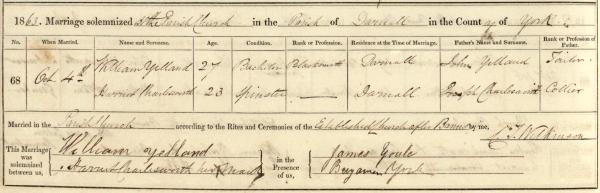 1863. Marriage solemnized at the Parish Church in the Parish of Darnall in the County of York
No. When Married. Name and Surname. Age. Condition. Rank or Profession. Residence at the Time of Marriage. Father's Name and Surname. Rank or Profession of Father.
68 Oct 4th William Yelland 27 Bachelor Blacksmith Darnall John Yelland Tailor
Harriet Charlesworth 23 Spinster — Darnall Joseph Charlesworth Collier
Married in the Parish Church according to the Rites and Ceremonies of the Established Church after Banns by me,
This Marriage was solemnized between us, William Yelland in the Presence of us, James Youle
Harriet Charlesworth her mark Benjamin York